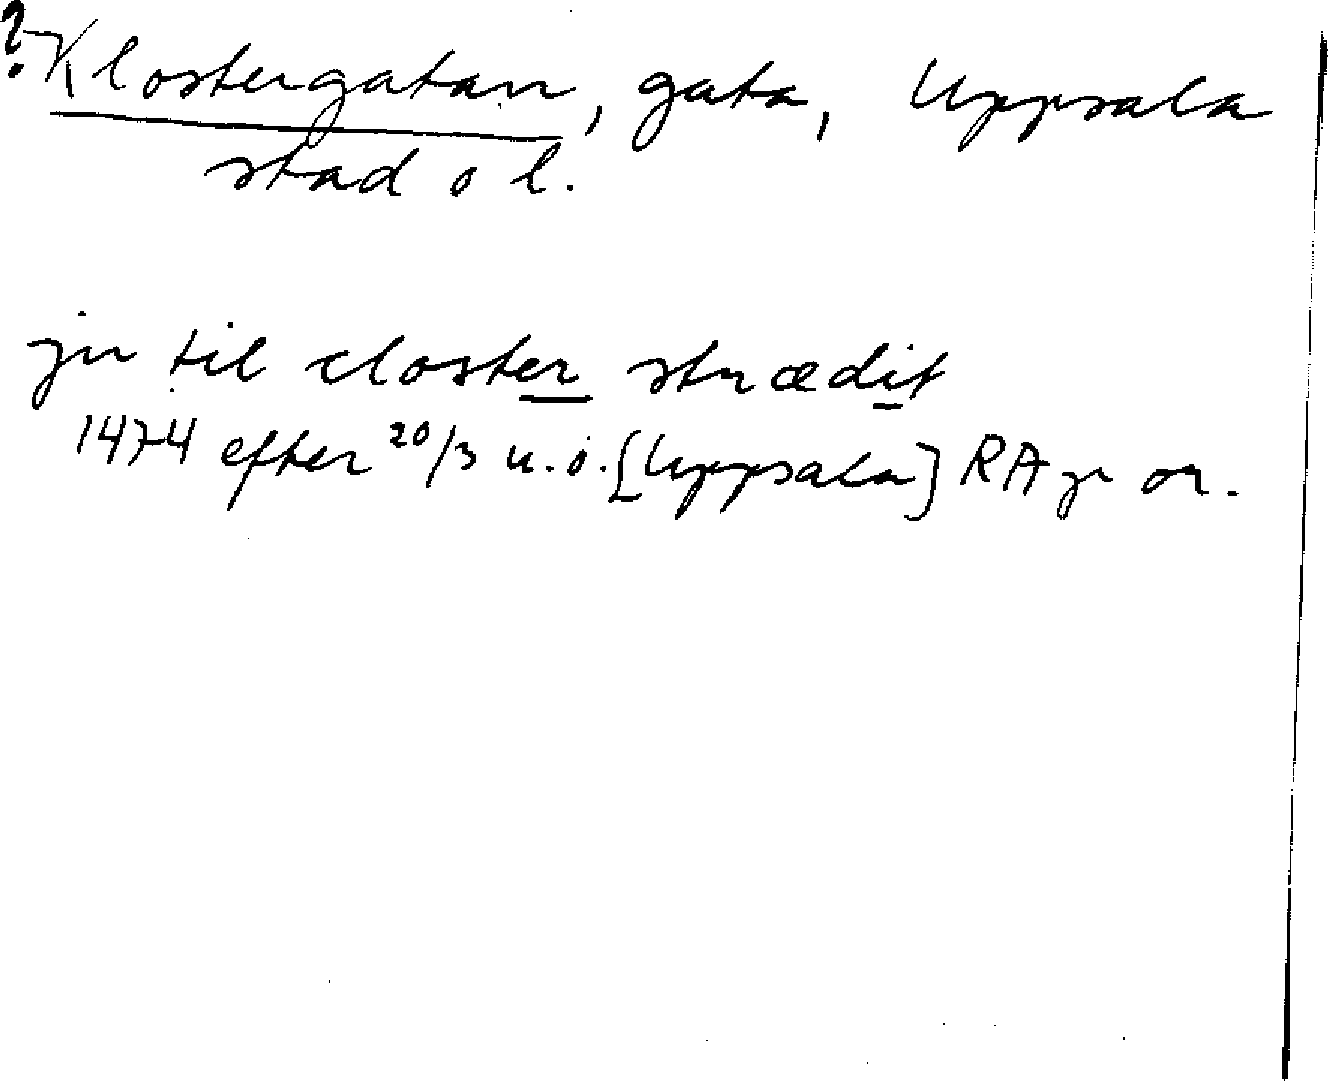 ? Klostergatan, gata, Uppsala
stad o l.
jn til closter strædit
1474 efter 20/3 u. o. [Uppsala] RAp or.